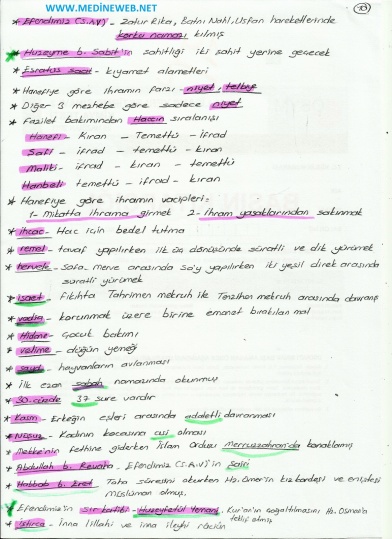 www.MEDINEWEB.NET
* Efendimiz (s.a.v) - Zatur Rika, Batnı Nahl, Usfan hareketlerinde
korku namazı kılmış
* Huzeyme b. Sabit'in şahitliği iki şahit yerine geçecek
* Eşratus saat - kıyamet alametleri
* Hanefiye göre ihramın farzı - niyet, telbiye
* Diğer 3 mezhebe göre sadece niyet
* Fazilet bakımından Haccın sıralanışı
Hanefi - Kıran - Temettü - ifrad
Şafi - ifrad - temettü - kıran
Maliki - ifrad - kıran - temettü
Hanbeli temettü - ifrad - kıran
* Hanefiye göre ihramın vacipleri:
1- Mikatta ihrama girmek 2- ihram yasaklarından sakınmak
* ihcac - Hac için bedel tutma
* remel - tavaf yapılırken ilk üç dönüşünde süratli ve dik yürümek
* hervele - Safa, merve arasında sa'y yapılırken iki yeşil direk arasında
süratli yürümek
* isaet - Fıkıhta Tahrimen mekruh ile Tenzihen mekruh arasında davranış
* vadia - korunmak üzere birine emanet bırakılan mal
* Hidane - Çocuk bakımı
* velime - düğün yemeği
* sayd - hayvanların avlanması
* İlk ezan sabah namazında okunmuş
* 30. cüzde 37 sure vardır
* Kasm - Erkeğin eşleri arasında adaletli davranması
* Nüşuz - Kadının kocasına asi olması
* Mekke'nin fethine giderken İslam Ordusu Merruzzahran'da konaklamış
* Abdullah b. Revaha - Efendimiz (s.a.v)'in şairi
* Habbab b. Eret Taha süresini okurken Hz. Ömer'in kız kardeşi ve eniştesi
müslüman olmuş.
* Efendimiz'in sır katibi - Huzeyfetül Yemani, Kur'an'ın çoğaltılmasını Hz. Osman'a
teklif etmiş
* istirca - inna lillahi ve inna ileyhi raciun